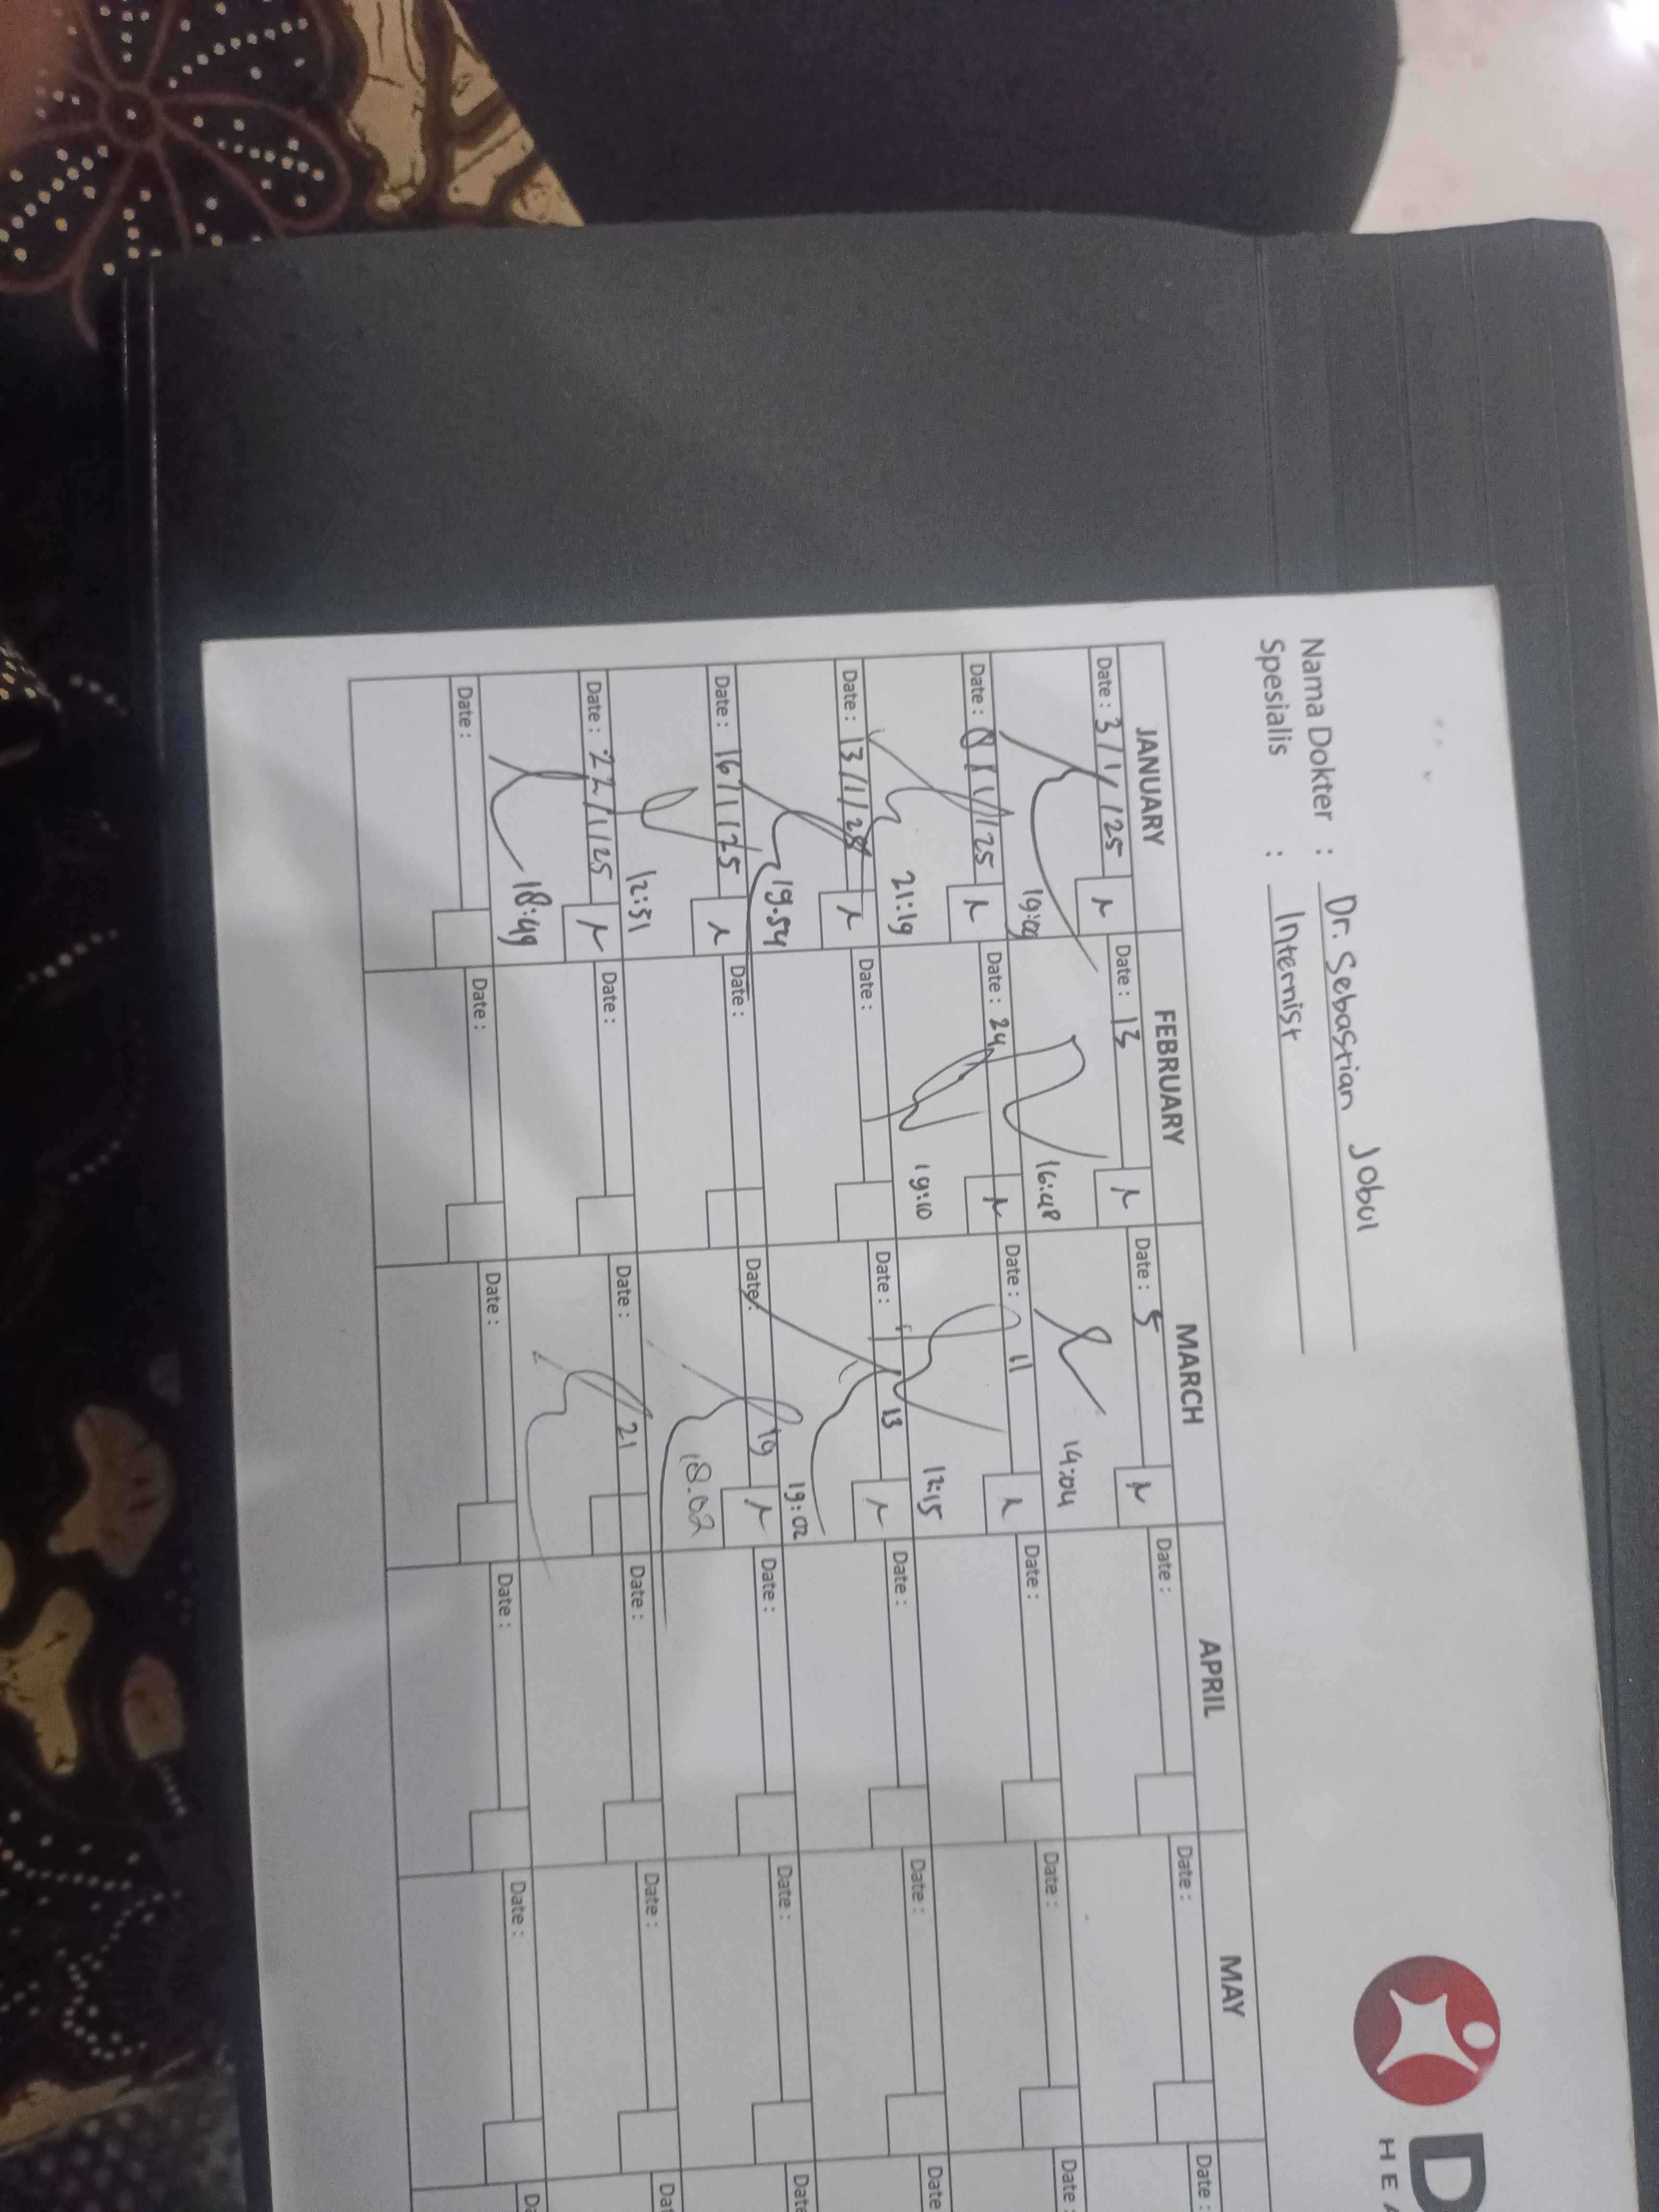 D
HEA
Nama Dokter : Dr. Sebastian Jobul
Spesialis : Internist
JANUARY FEBRUARY MARCH APRIL MAY
Date : 3/1/25 Date : 13 Date : 5 Date : Date : Date :
19:09 16:48 14:04
Date : 8/1/25 Date : 24 Date : 11 Date : Date : Date :
21:19 19:10 12:15
Date : 13/1/25 Date : Date : 13 Date : Date : Date
19.54 19:02
Date : 16/1/25 Date : Date : 19 Date : Date : Date
12:51 18.02
Date : 22/1/25 Date : Date : 21 Date : Date : Dat
18:49
Date : Date : Date : Date : Date : Da